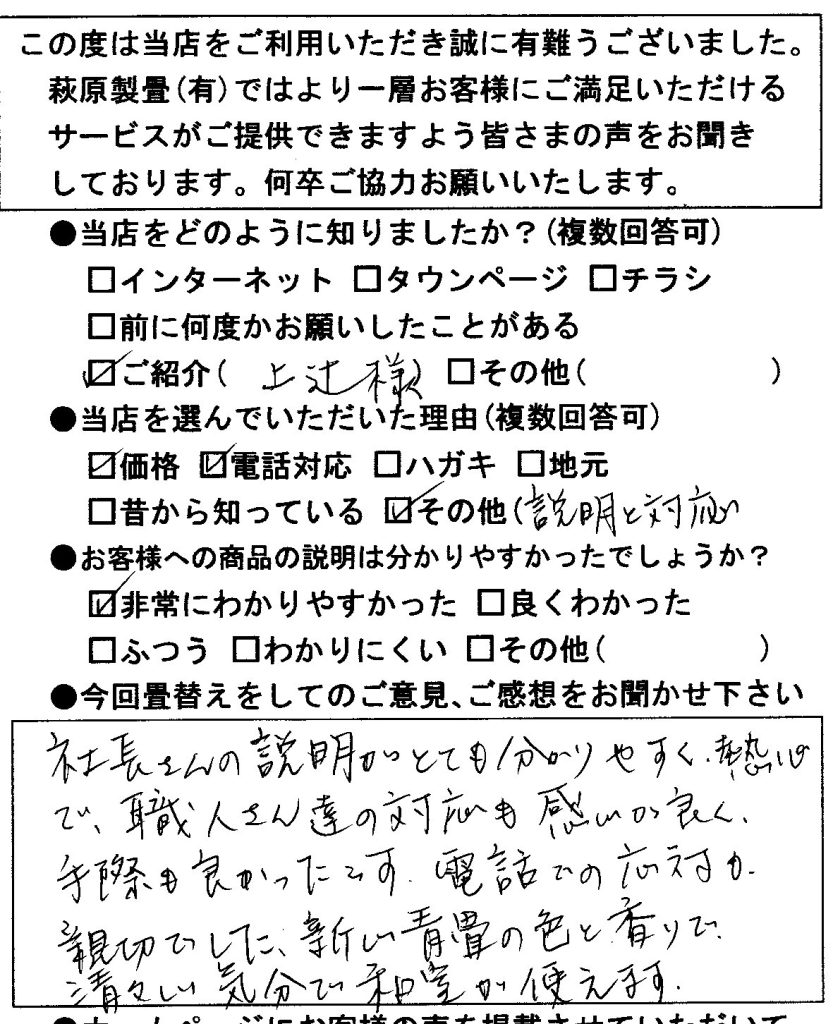 この度は当店をご利用いただき誠に有難うございました。
萩原製畳(有)ではより一層お客様にご満足いただける
サービスがご提供できますよう皆さまの声をお聞き
しております。何卒ご協力お願いいたします。
●当店をどのように知りましたか？(複数回答可)
□インターネット □タウンページ □チラシ
□前に何度かお願いしたことがある
☑ご紹介( 上辻様) □その他( )
●当店を選んでいただいた理由(複数回答可)
☑価格 ☑電話対応 □ハガキ □地元
□昔から知っている ☑その他(説明と対応
●お客様への商品の説明は分かりやすかったでしょうか？
☑非常にわかりやすかった □良くわかった
□ふつう □わかりにくい □その他( )
●今回畳替えをしてのご意見、ご感想をお聞かせ下さい
社長さんの説明がとても分かりやすく、熱心
で、職人さん達の対応も感じが良く、
手際も良かったです。電話での応対が
親切でした、新しい青畳の色と香りで、
清々しい気分で和室が使えます。
●ホームページにお客様の声を掲載させていただいて